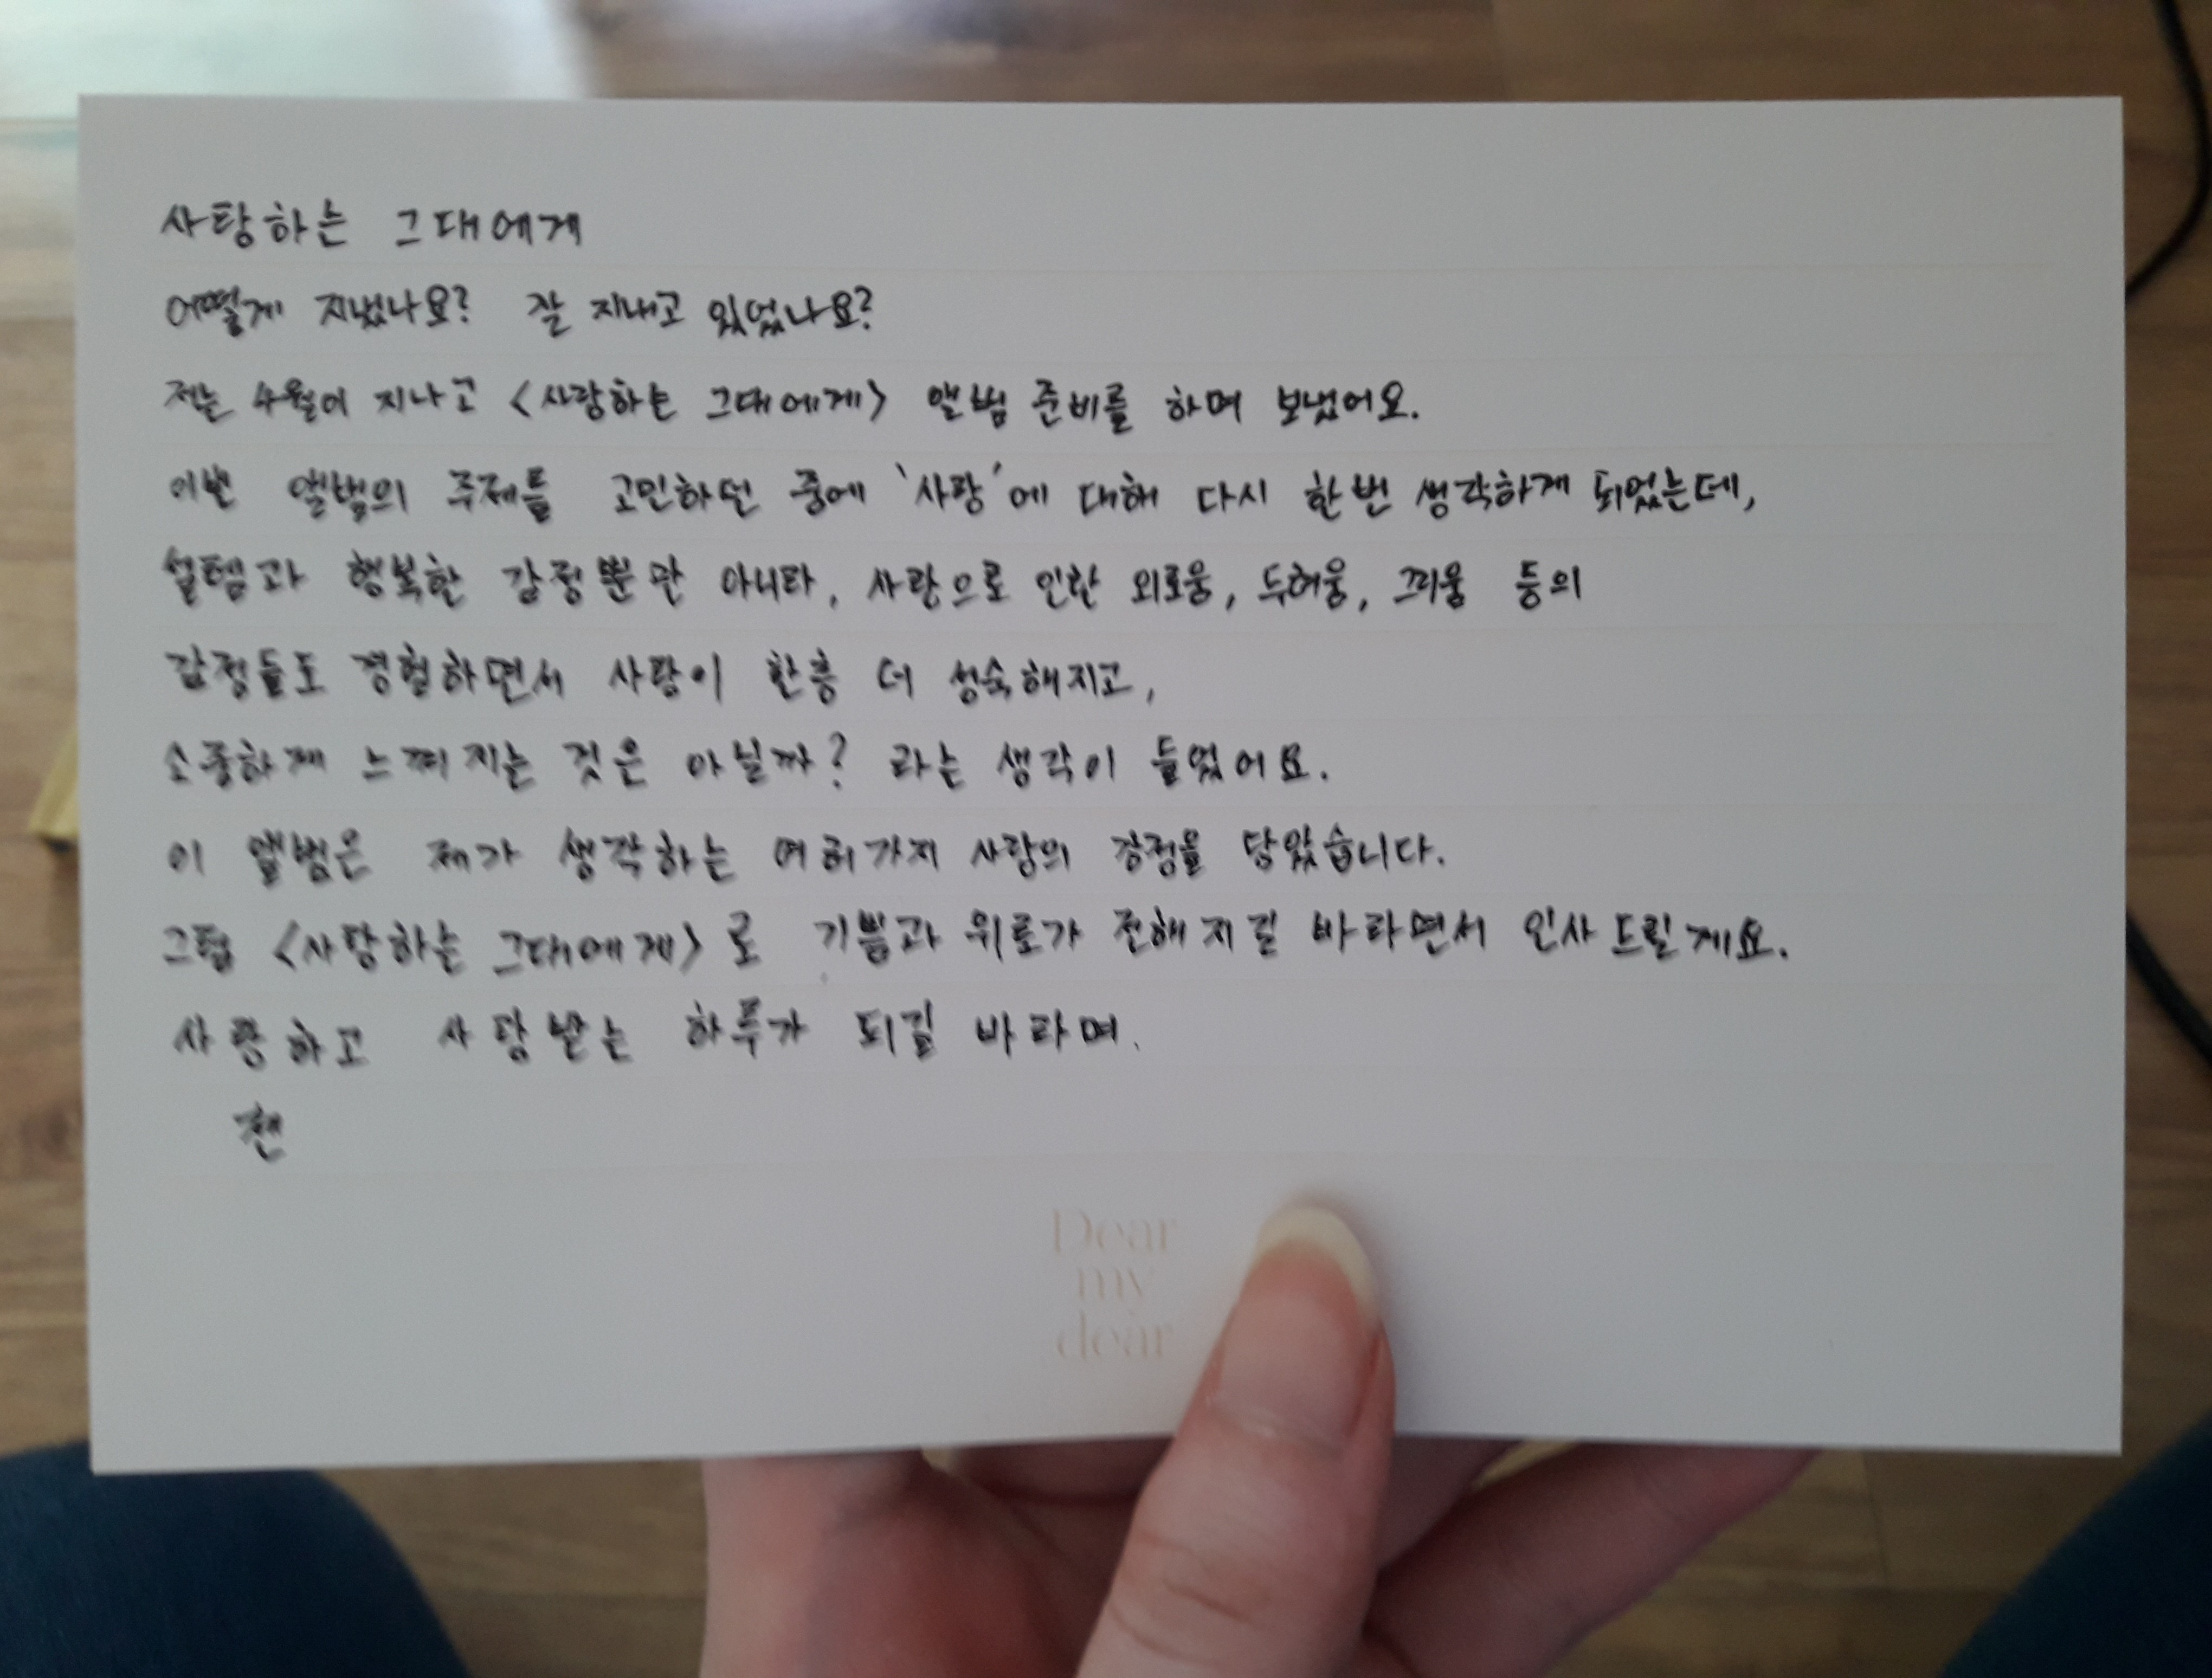 사랑하는 그대에게
어떻게 지냈나요? 잘 지내고 있었나요?
저는 4월이 지나고 <사랑하는 그대에게> 앨범 준비를 하며 보냈어요.
이번 앨범의 주제를 고민하던 중에 '사랑'에 대해 다시 한번 생각하게 되었는데,
설렘과 행복한 감정뿐만 아니라, 사랑으로 인한 외로움, 두려움, 그리움 등의
감정들도 경험하면서 사랑이 한층 더 성숙해지고,
소중하게 느껴지는 것은 아닐까? 라는 생각이 들었어요.
이 앨범은 제가 생각하는 여러가지 사랑의 감정을 담았습니다.
그럼 <사랑하는 그대에게>로 기쁨과 위로가 전해지길 바라면서 인사드릴게요.
사랑하고 사랑받는 하루가 되길 바라며.
첸
Dear
my
dear